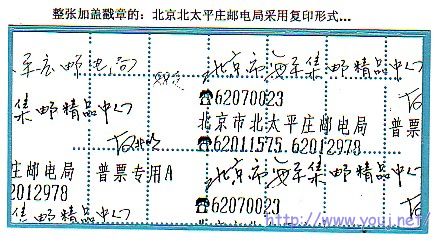 整张加盖戳章的：北京北太平庄邮电局采用复印形式...
庄邮电局
北京市海军集邮精品中心
☎62070023
集邮精品中心
北京市北太平庄邮电局
普票
☎62011575.62012978
庄邮电局
普票专用A
北京市海军集邮精品中心
2012978
集邮精品中心
☎62070023
http://www.youj.net/